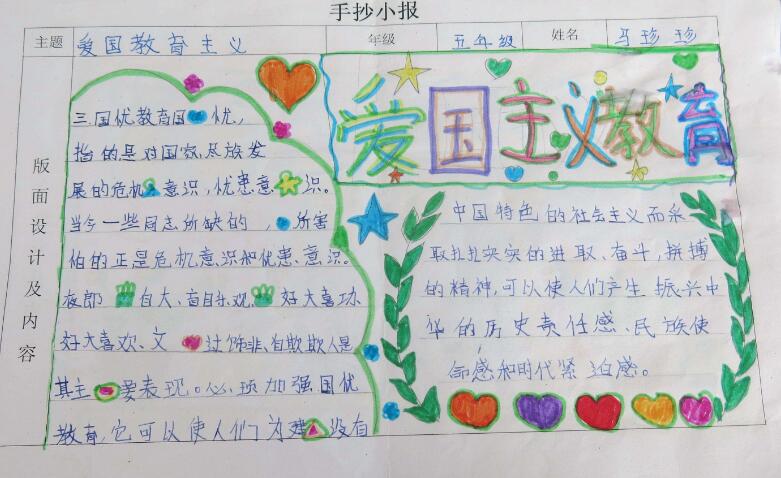 手抄小报
主题 爱国教育主义 年级 五年级 姓名 马珍珍
版面设计及内容
爱国主义教育
三.国优教育国忧,
指的是对国家及族发
展的危机意识,忧患意识。
当今一些同志所缺的,所害
怕的正是危机意识和优患、意识。
夜郎自大、盲目乐观、好大喜功
好大喜欢、文过饰非、自欺欺人是
其主要表现。必须加强国优
教育,它可以使人们为建没有
中国特色的社会主义而采
取扎扎实实的进取、奋斗,拼搏
的精神,可以使人们产生振兴中
华的历史责任感、民族使
命感和时代紧迫感。